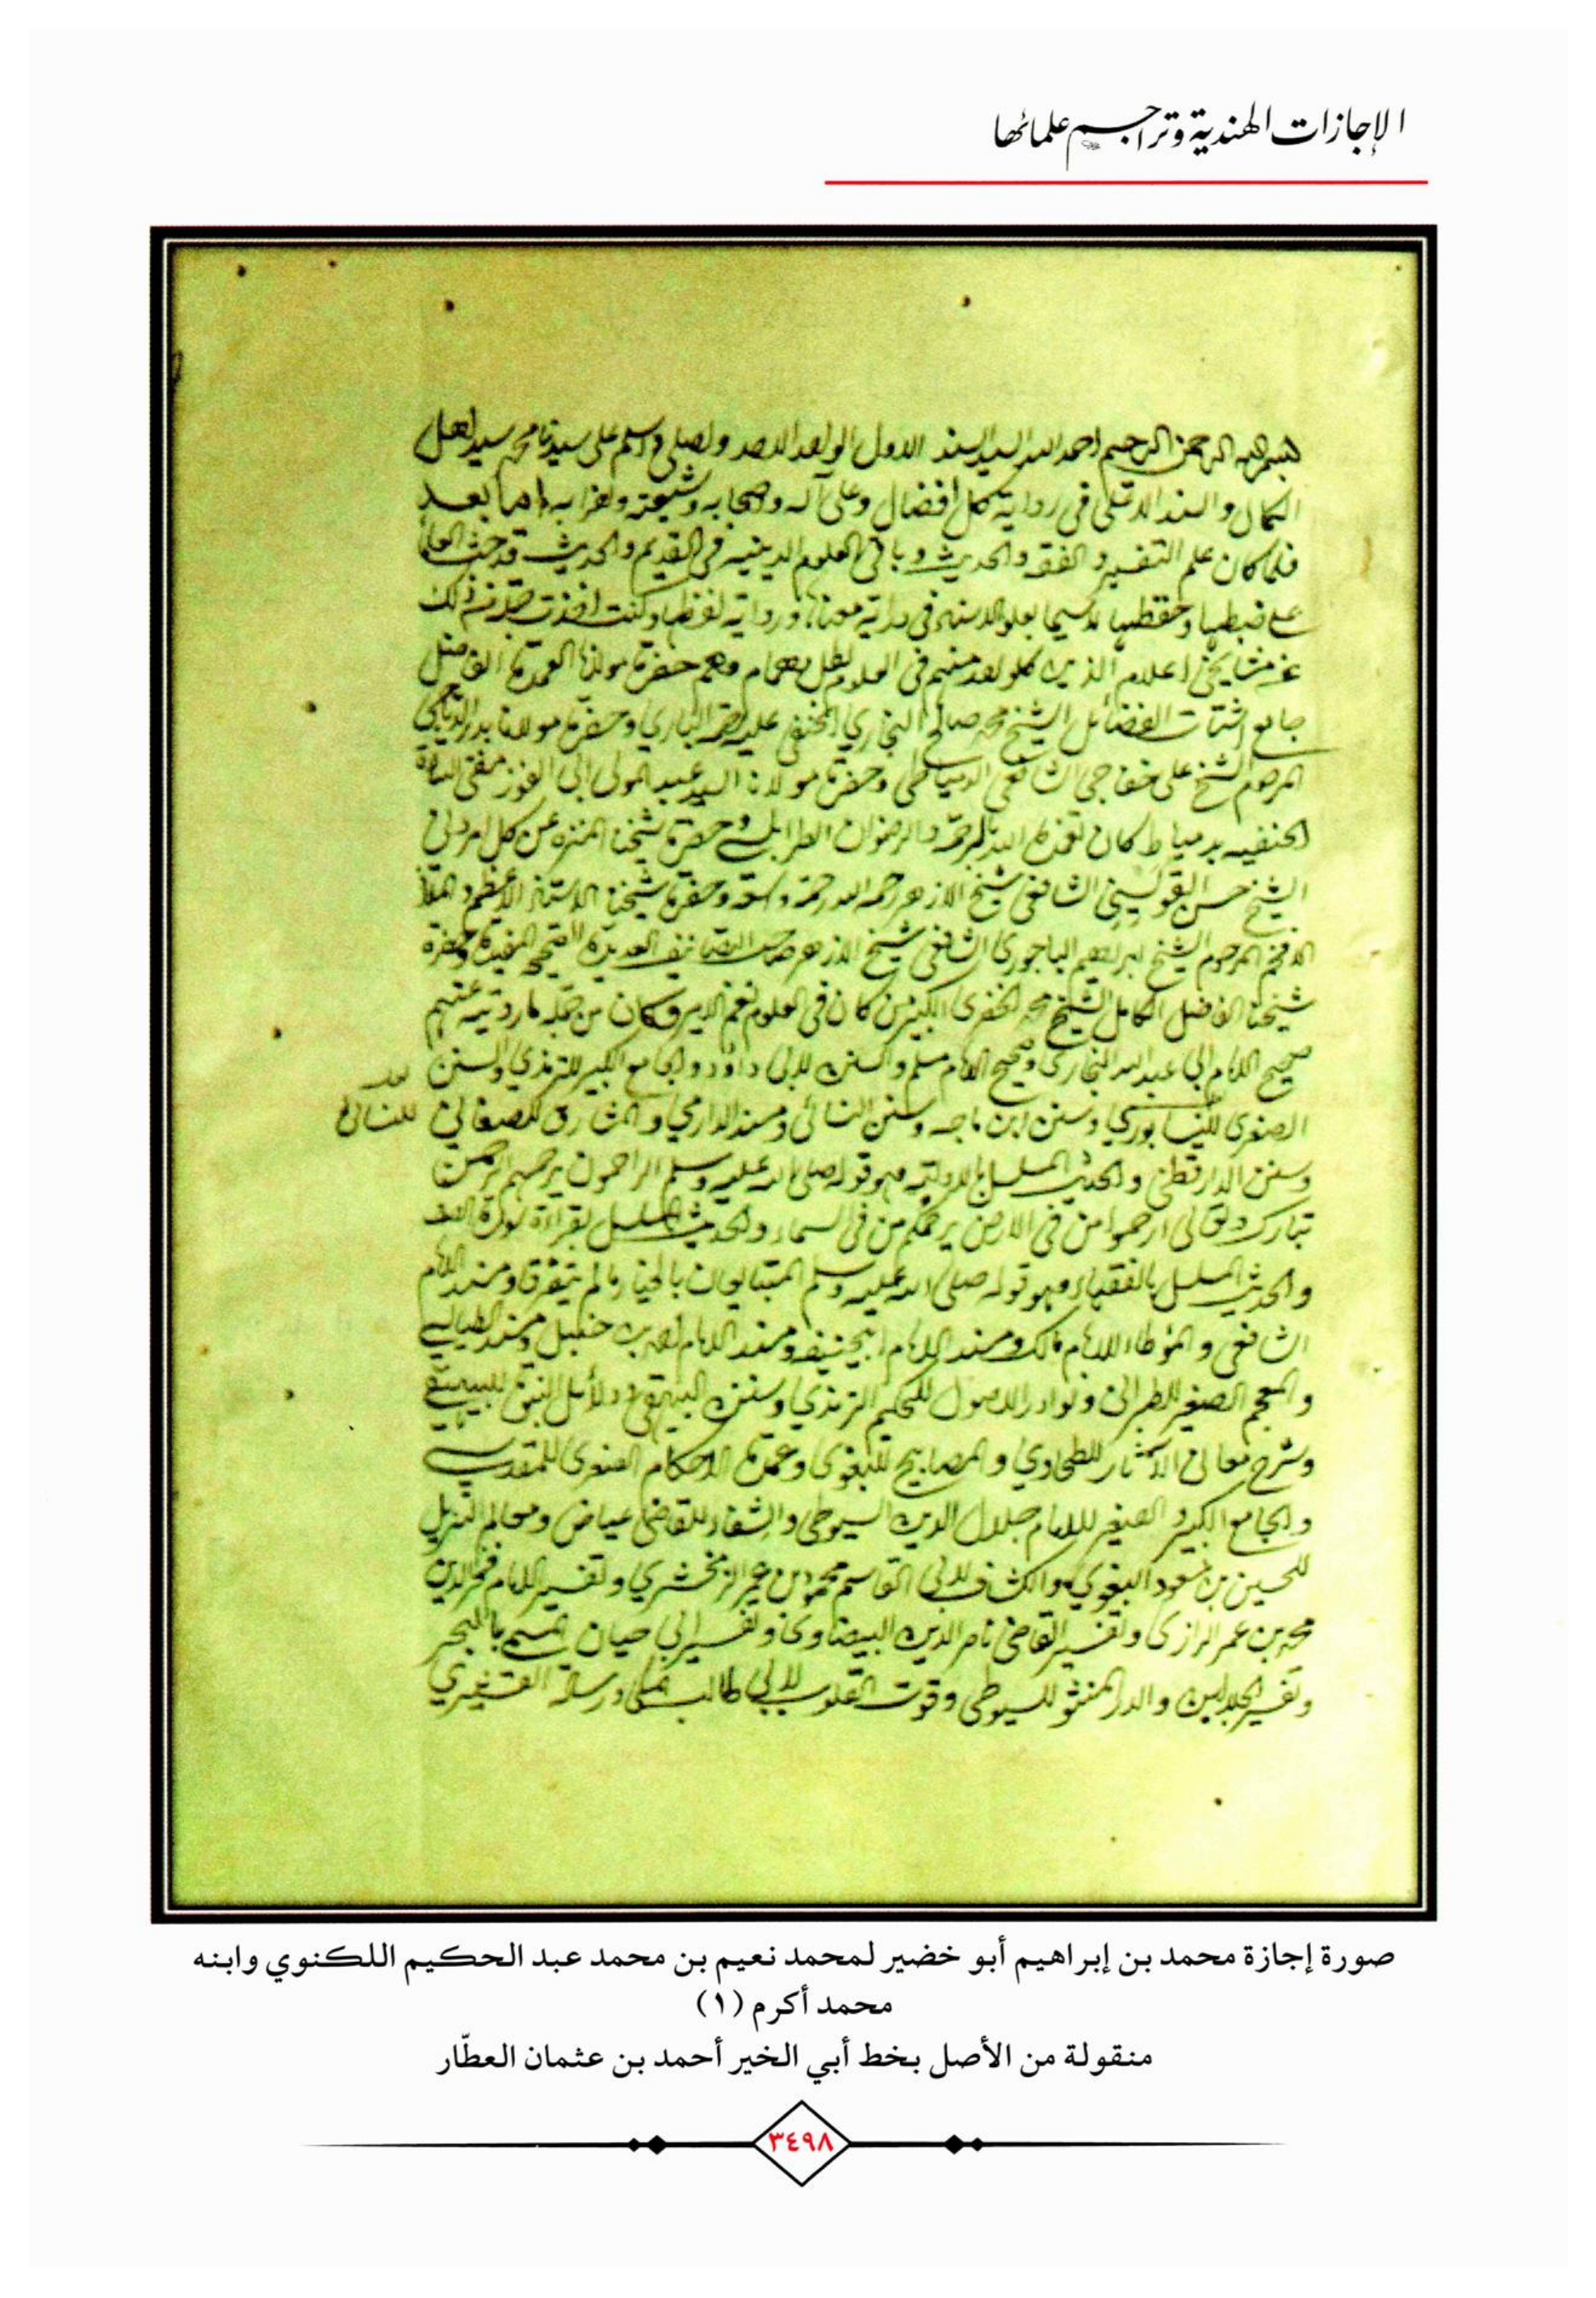 الإجازات الهندية وتراجم علمائها
بسم الله الرحمن الرحيم احمد الله السند الاول الواحد الاحد واصلي واسلم على سيدنا محمد سيد اهل
الكمال والسند الاعلى في رواية كل افضال وعلى آله واصحابه وشيعته واحزابه اما بعد
فلما كان علم التفسير والفقه والحديث وباقي العلوم الدينيه في القديم والحديث قد حث العلماء
على ضبطها وحفظها لا سيما بعلو الاسناد في دراية معناها ورواية لفظها وكنت اخذت ذلك
عن مشايخي اعلام الذين كل واحد منهم في العلوم وهم حضرة مولانا العمدة الفاضل
جامع اشتات الفضائل الشيخ محمد صالح البخاري الحنفي عليه رحمة الباري وحضرة مولانا بدر الدياجي
المرحوم الشيخ على خفاجي الشافعي الدمياطي وحضرة مولانا السيد عبد المولى ابى الفوز مفتى السادة
الحنفيه بدمياط كان تغمده الله بالرحمة والرضوان الطرابلسي وحضرة شيخنا المنزه عن كل امر دني
الشيخ حسن القويسني الشافعي شيخ الازهر رحمه الله رحمة واسعة وحضرة شيخنا الاستاذ الاعظم والملاذ
الافخم المرحوم الشيخ ابراهيم الباجوري الشافعي شيخ الازهر صاحب التصانيف العديدة المفيدة وحضرة
شيخنا الفاضل الكامل الشيخ محمد الخضري الكبير من كان في العلوم نعم الامير وكان من جملة ما رويته عنهم
صحيح الامام ابي عبد الله البخاري وصحيح الامام مسلم والسنن لابي داود والجامع الكبير للترمذي والسنن
الصغرى للنيسابوري وسنن ابن ماجه وسنن النسائي ومسند الدارمي والمشارق للصغاني
للنسائي
وسنن الدارقطني والحديث المسلسل بالاولية وهو قوله صلى الله عليه وسلم الراحمون يرحمهم الرحمن
تبارك وتعالى ارحموا من في الارض يرحمكم من في السماء والحديث المسلسل بقراءة سورة الصف
والحديث المسلسل بالفقهاء وهو قوله صلى الله عليه وسلم المتبايعان بالخيار مالم يتفرقا ومسند الامام
الشافعي والموطاء للامام مالك ومسند الامام ابيحنيفه ومسند الامام احمد بن حنبل ومسند الطيالسي
والمعجم الصغير للطبراني ونوادر الاصول للحكيم الترمذي وسنن البيهقي ودلائل النبوة للبيهقي
وشرح معاني الآثار للطحاوي والمصابيح للبغوي وعمدة الاحكام الصغرى للمقدسي
والجامع الكبير والصغير للامام جلال الدين السيوطي والشفاء للقاضي عياض ومعالم التنزيل
للحسين بن مسعود البغوي والكشاف لابي القاسم محمود بن عمر الزمخشري وتفسير الامام فخر الدين
محمد بن عمر الرازي وتفسير القاضي ناصر الدين البيضاوي وتفسير ابي حيان المسمى بالبحر
وتفسير الجلالين والدر المنثور للسيوطي وقوت القلوب لابي طالب المكي ورسالة القشيري
صورة إجازة محمد بن إبراهيم أبو خضير لمحمد نعيم بن محمد عبد الحكيم اللكنوي وابنه
محمد أكرم (١)
منقولة من الأصل بخط أبي الخير أحمد بن عثمان العطّار
٣٤٩٨